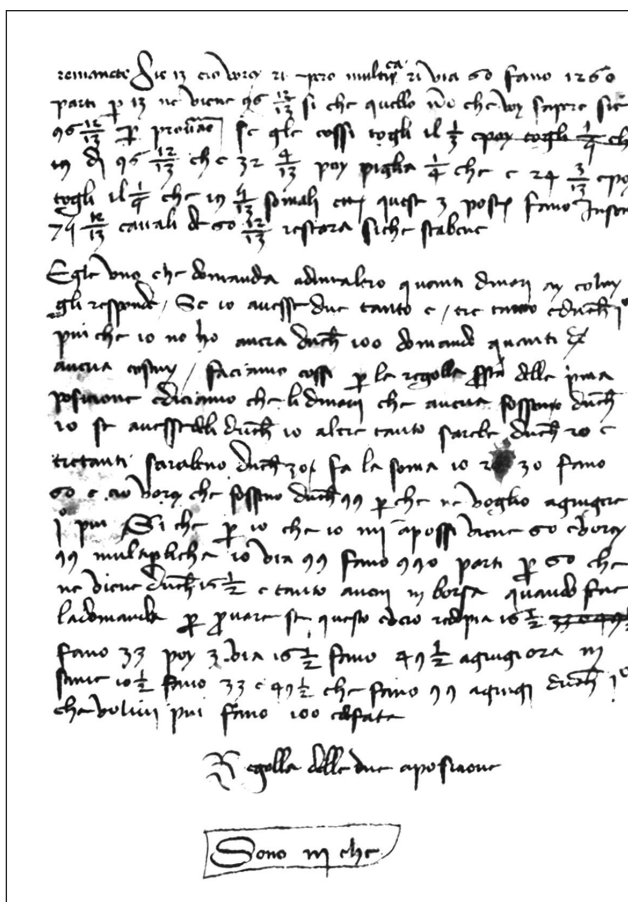 remanete sie 13 cio voro 21 pero multica 21 via 60 fano 1260
parti p 13 ne viene 96 12/13 si che quello no che voy sapere sie
96 12/13 p provare se gle cossi togli il 1/3 epoy togli 1/4 ch
in di 96 12/13 che 32 4/13 poy piglia 1/4 che e 24 3/13 epo
togli il 1/4 che in 4/13 somali queste 3 posti fano insem
12/13 cavali de 60 12/13 restara siche stabene
Egle uno che domanda adunaltro quanti dinari ay colui
gli responde / Se io avesse due tanto e / tre tanto e duch 1o
piu che io no ho avera duch 100 domando quanti
aveva costuy / faciamo cossi p la regolla delle
posicione e diciamo che li dinari che aveva fosseno duch
10 se avesse deli duch 10 altre tanto sarebe duch 20 e
tretanti sarabeno duch 30 fa la soma 10 20 30 fano
60 e io voro che fosseno duch 99 p che ne voglio agiugire
1 piu Si che p 10 che io mi aposi viene 60 e voroy
99 multipliche 10 via 99 fano 990 parti p 60 che
ne viene duch 16 1/2 e tanto avea in borsa quando fece
la domanda p provare se questo e vero redopia 16 1/2 33 e 49 1/2
fano 33 poy 3 via 16 1/2 fano 49 1/2 agiugi ora in
seme 16 1/2 fano 33 e 49 1/2 che fano 99 agiugi duch 1o
che volivi piu fano 100 e fata
Regolla delle due aposicione
Sono in che